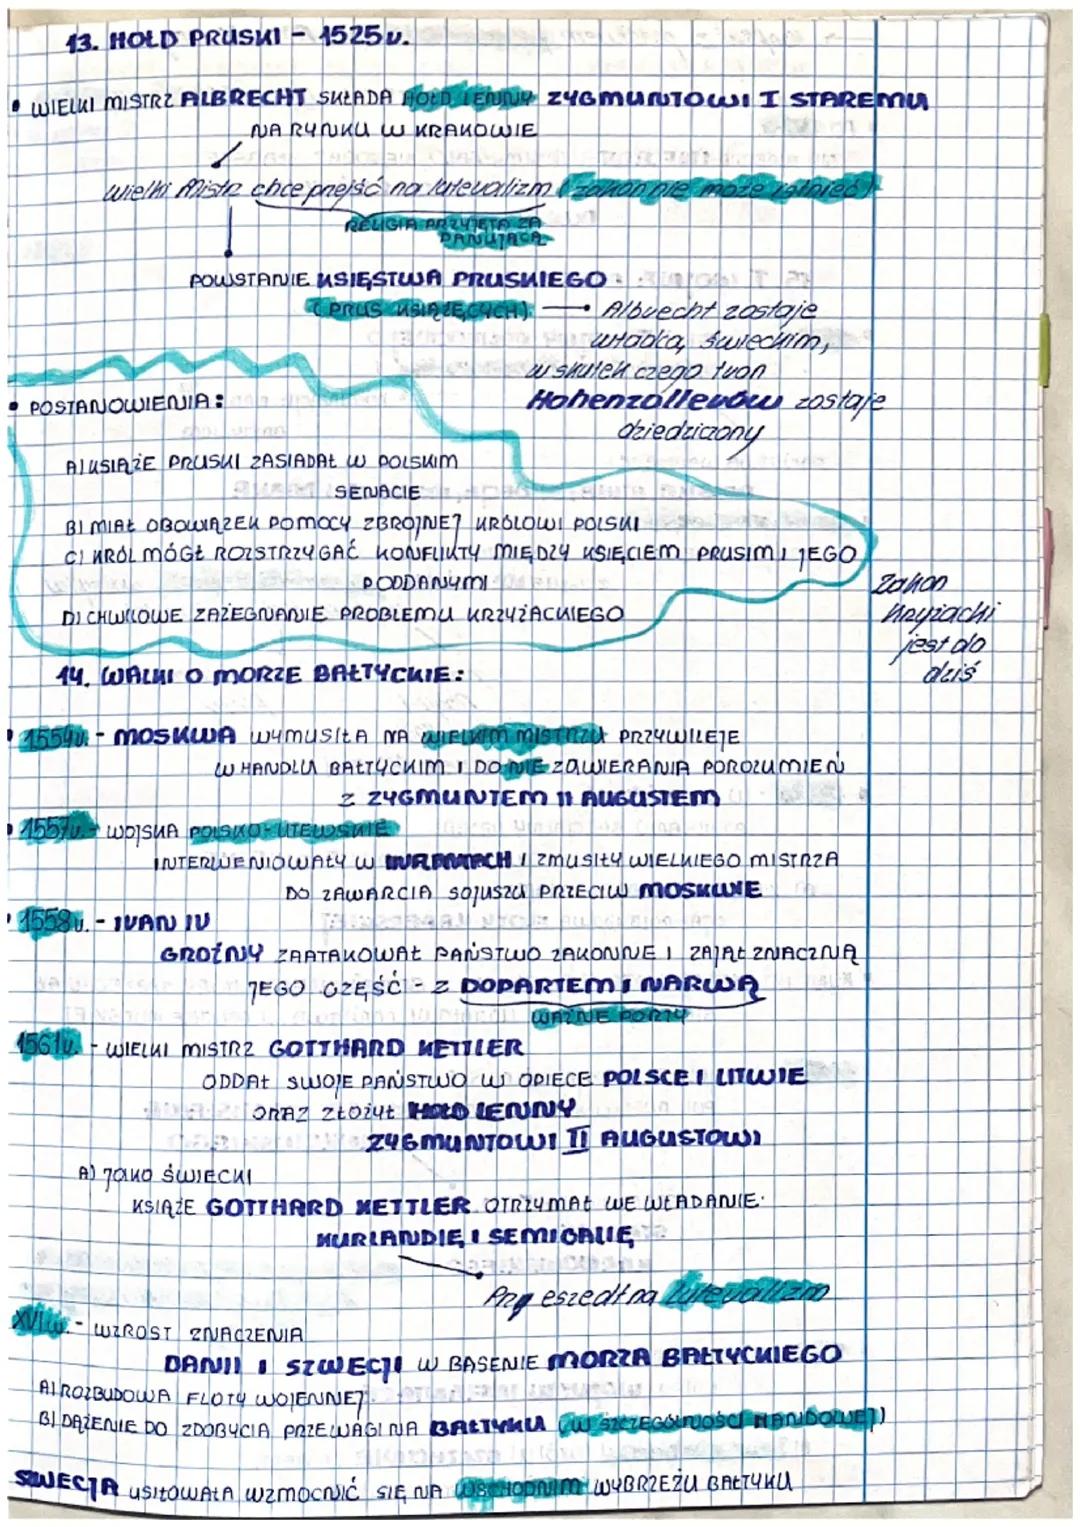 13. HOŁD PRUSKI - 1525r.
• WIELKI MISTRZ ALBRECHT SKŁADA HOŁD LENNY ZYGMUNTOWI I STAREMU
NA RYNKU W KRAKOWIE
Wielki Mistrz chce przejść na luteralizm (zakon nie może istnieć)
RELIGIA PRZYJĘTA ZA
PANUJĄCĄ
POWSTANIE KSIĘSTWA PRUSKIEGO
(PRUS KSIĄŻĘCYCH) → Albrecht zostaje
władcą świeckim,
w skutek czego tron
Hohenzollernów zostaje
dziedziczony
• POSTANOWIENIA:
A) KSIĄŻE PRUSKI ZASIADAŁ W POLSKIM
SENACIE
B) MIAŁ OBOWIĄZEK POMOCY ZBROJNEJ KRÓLOWI POLSKI
C) KRÓL MÓGŁ ROZSTRZYGAĆ KONFLIKTY MIĘDZY KSIĘCIEM PRUSIM I JEGO
PODDANYMI
D) CHWILOWE ZAŻEGNANIE PROBLEMU KRZYŻACKIEGO
Zakon
krzyżacki
jest do
dziś
14. WALKI O MORZE BAŁTYCKIE:
• 1554r. - MOSKWA WYMUSIŁA NA WIELKIM MISTRZU PRZYWILEJE
W HANDLU BAŁTYCKIM I DO NIE ZAWIERANIA POROZUMIEŃ
Z ZYGMUNTEM II AUGUSTEM
• 1557r. - WOJSKA POLSKO-LITEWSKIE
INTERWENIOWAŁY W INFLANTACH I ZMUSIŁY WIELKIEGO MISTRZA
DO ZAWARCIA SOJUSZU PRZECIW MOSKWIE
• 1558r. - IVAN IV
GROŹNY ZAATAKOWAŁ PAŃSTWO ZAKONNE I ZAJĄŁ ZNACZNĄ
JEGO CZĘŚĆ - Z DOPARTEM I NARWĄ
WAŻNE PORTY
1561r. - WIELKI MISTRZ GOTTHARD KETTLER
ODDAŁ SWOJE PAŃSTWO W OPIECE POLSCE I LITWIE
ORAZ ZŁOŻYŁ HOŁD LENNY
ZYGMUNTOWI II AUGUSTOWI
A) JAKO ŚWIECKI
KSIĄŻE GOTTHARD KETTLER OTRZYMAŁ WE WŁADANIE:
KURLANDIĘ I SEMIGALIĘ
Przeszedł na luteralizm
XVI w. - WZROST ZNACZENIA
DANII I SZWECJI W BASENIE MORZA BAŁTYCKIEGO
A) ROZBUDOWA FLOTY WOJENNEJ
B) DĄŻENIE DO ZDOBYCIA PRZEWAGI NA BAŁTYKU (W SZCZEGÓLNOŚCI HANDOWEJ)
SZWECJA USIŁOWAŁA WZMOCNIĆ SIĘ NA WSCHODNIM WYBRZEŻU BAŁTYKU